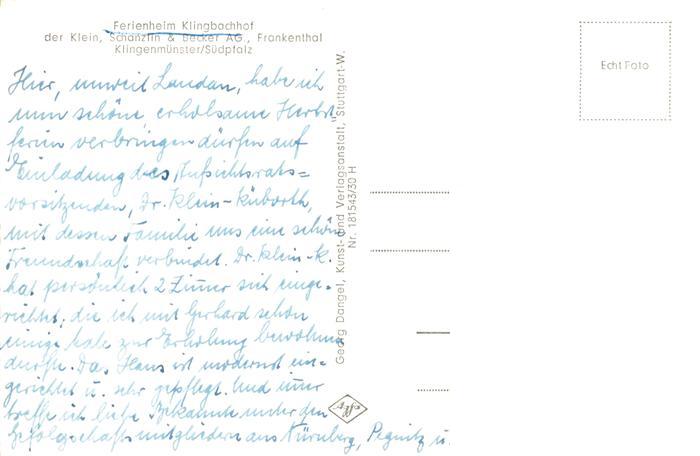 Ferienheim Klingbachhof
der Klein, Schanzlin & Becker AG., Frankenthal
Klingenmünster/Südpfalz
Echt Foto
Hier, unweit Landau, habe ich
nun schöne erholsame Herbst-
ferien verbringen dürfen auf
Einladung des Aufsichtsrats=
vorsitzenden, Dr. Klein-Kühborth,
mit dessen Familie uns eine schöne
Freundschaft verbindet. Dr. Klein-K.
hat persönlich 2 Zimmer sich einge-
richtet, die ich mit Gerhard schon
einige Male zur Erholung bewohnen
durfte. Das Haus ist modernst ein-
gerichtet u. sehr gepflegt. Und immer
treffe ich liebe Bekannte unter den
Gefolgschaftsmitgliedern aus Nürnberg, Pegnitz u.
Georg Dangel, Kunst- und Verlagsanstalt, Stuttgart-W.
Nr. 181543/30 H
Agfa